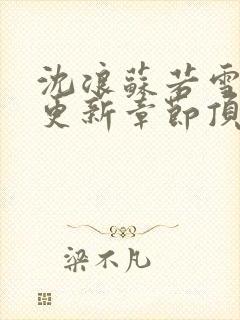 沈浪蘇若雪
更新章節頂
梁不凡